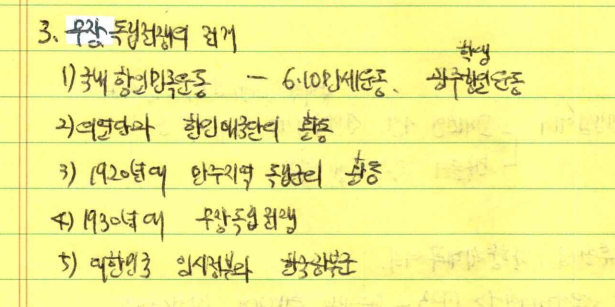 3. 무장독립전쟁의 전개
학생
1) 국내 항일민족운동 — 6.10만세운동, 광주항일운동
2) 의열단과 한인애국단의 활동
3) 1920년대 만주지역 독립군의 활동
4) 1930년대 무장독립전쟁
5) 대한민국 임시정부와 한국광복군